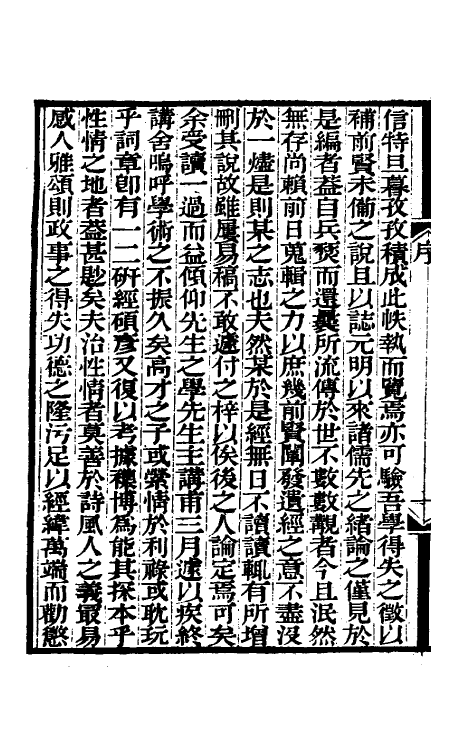 序
信特旦暮孜孜積成此帙執而覽焉亦可驗吾學得失之徵以
補前賢未備之說且以誌元明以來諸儒先之緒論之僅見於
是編者葢自兵燹而還曩所流傳於世不數數觀者今且泯然
無存尚賴前日蒐輯之力以庶幾前賢闡發遺經之意不盡沒
於一燼是則某之志也夫然某於是經無日不讀讀輒有所增
刪其說故雖屢易稿不敢遽付之梓以俟後之人論定焉可矣
余受讀一過而益傾仰先生之學先生主講甫三月遽以疾終
講舍嗚呼學術之不振久矣高才之子或縈情於利祿或耽玩
乎詞章卽有一二硏經碩彥又復以考據穰博爲能其探本乎
性情之地者葢甚尠矣夫治性情者莫善於詩風人之義最易
感人雅頌則政事之得失功德之隆污足以經緯萬端而勸懲